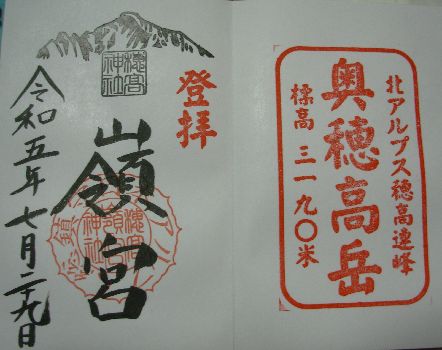 北アルプス穂高連峰
奥穂高岳
標高 三一九〇米
登拝
穂高
神社
嶺宮
令和五年七月二十九日